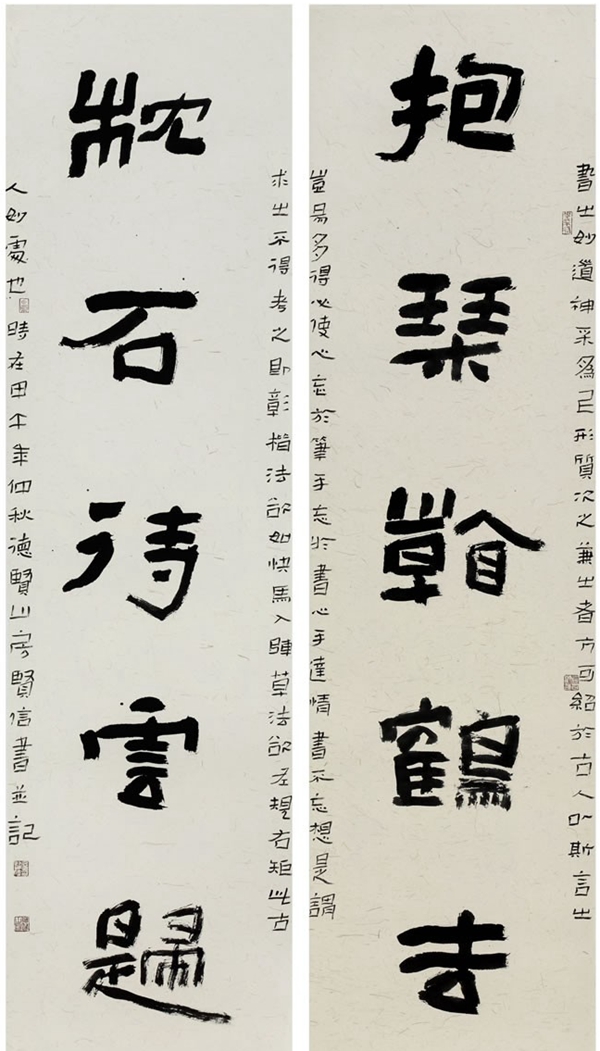 書之妙道神采爲上形質次之兼之者方可紹於古人以斯言之
抱琴看鶴去
豈易多得必使心忘於筆手忘於書心手達情書不忘想是謂
求之不得考之即彰楷法欲如快馬入陣草法欲左規右矩此古
枕石待雲歸
人妙處也時在甲午年仲秋德賢山房賢信書並記